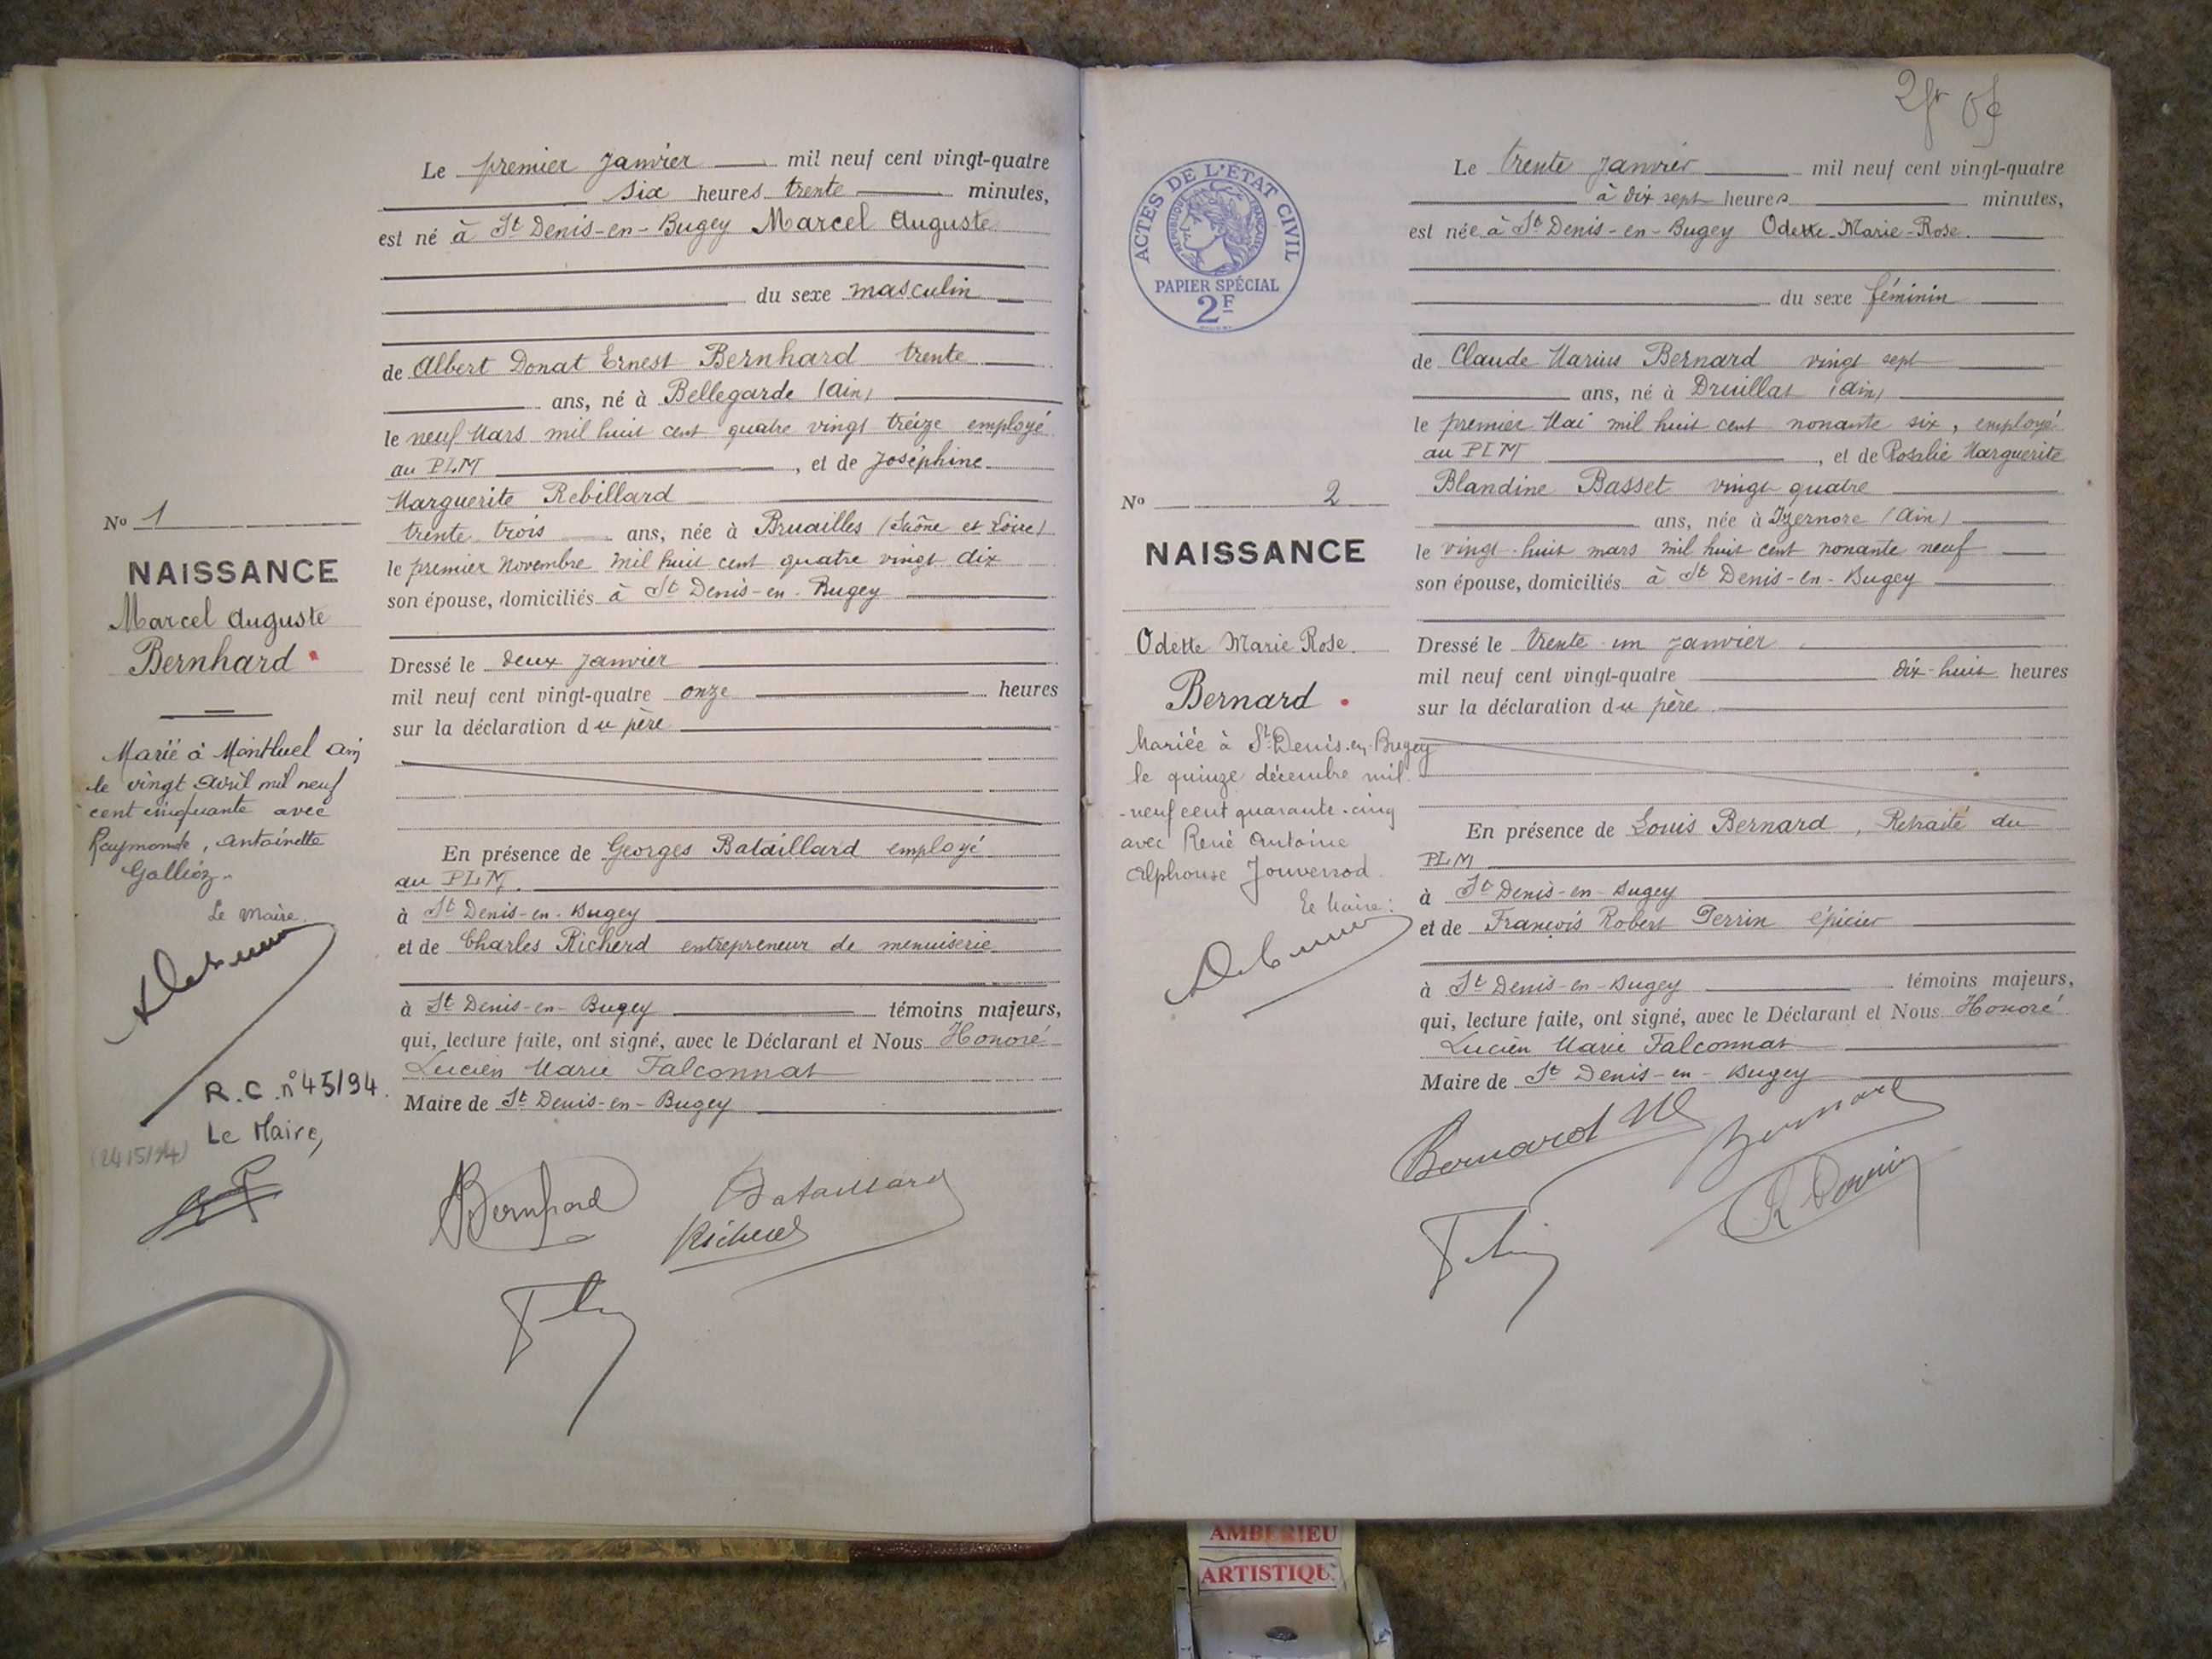 Le premier Janvier mil neuf cent vingt-quatre
six heures trente minutes,
est né à St Denis-en-Bugey Marcel Auguste
du sexe masculin
de Albert Donat Ernest Bernhard trente
ans, né à Bellegarde (Ain)
le neuf Mars mil huit cent quatre vingt treize employé
au PLM , et de Joséphine
Marguerite Rebillard
trente trois ans, née à Bruailles (Saône et Loire)
le premier Novembre mil huit cent quatre vingt dix
son épouse, domiciliés à St Denis-en-Bugey
Dressé le deux Janvier
mil neuf cent vingt-quatre onze heures
sur la déclaration du père
En présence de Georges Bataillard employé
au PLM.
à St Denis-en-Bugey
et de Charles Richerd entrepreneur de menuiserie
à St Denis-en-Bugey témoins majeurs,
qui, lecture faite, ont signé, avec le Déclarant et Nous Honoré
Lucien Marie Falconnat
Maire de St Denis-en-Bugey
Bernhard
Bataillard
Richerd
No 1
NAISSANCE
Marcel Auguste
Bernhard
Marié à Montluel Ain
le vingt Avril mil neuf
cent cinquante avec
Raymonde, Antoinette
Gallioz.
Le Maire.
R.C. n°45/94.
Le Maire,
(24/5/94)
ACTES DE L'ETAT CIVIL
REPUBLIQUE FRANÇAISE
PAPIER SPÉCIAL
2F
No 2
NAISSANCE
Odette Marie Rose.
Bernard
Mariée à St Denis-en-Bugey
le quinze décembre mil
-neuf cent quarante-cinq
avec René Antoine
Alphonse Jouvenod.
Le Maire:
Le trente Janvier mil neuf cent vingt-quatre
à dix sept heures minutes,
est née à St Denis-en-Bugey Odette-Marie-Rose.
du sexe féminin
de Claude Marius Bernard vingt sept
ans, né à Druillat (Ain)
le premier Mai mil huit cent nonante six, employé
au PLM , et de Rosalie Marguerite
Blandine Basset vingt quatre
ans, née à Izernore (Ain)
le vingt-huit mars mil huit cent nonante neuf
son épouse, domiciliés à St Denis-en-Bugey
Dressé le trente-un Janvier
mil neuf cent vingt-quatre dix-huit heures
sur la déclaration du père.
En présence de Louis Bernard, Retraité du
PLM
à St Denis-en-Bugey
et de François Robert Perrin épicier
à St Denis-en-Bugey témoins majeurs,
qui, lecture faite, ont signé, avec le Déclarant et Nous Honoré
Lucien Marie Falconnat
Maire de St Denis-en-Bugey
Bernard
Bernard
R Perrin
AMBERIEU
ARTISTIQU